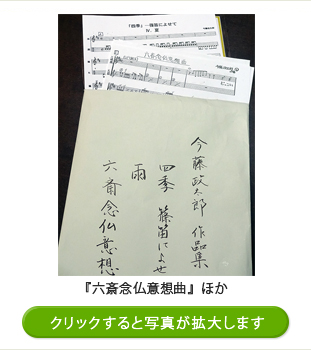 「四季」-篠笛によせて
Ⅳ. 夏
六斎念仏意想曲
今藤政太郎 作品集
四季 篠笛によせ
雨
六斎念仏意想
『六斎念仏意想曲』ほか
クリックすると写真が拡大します